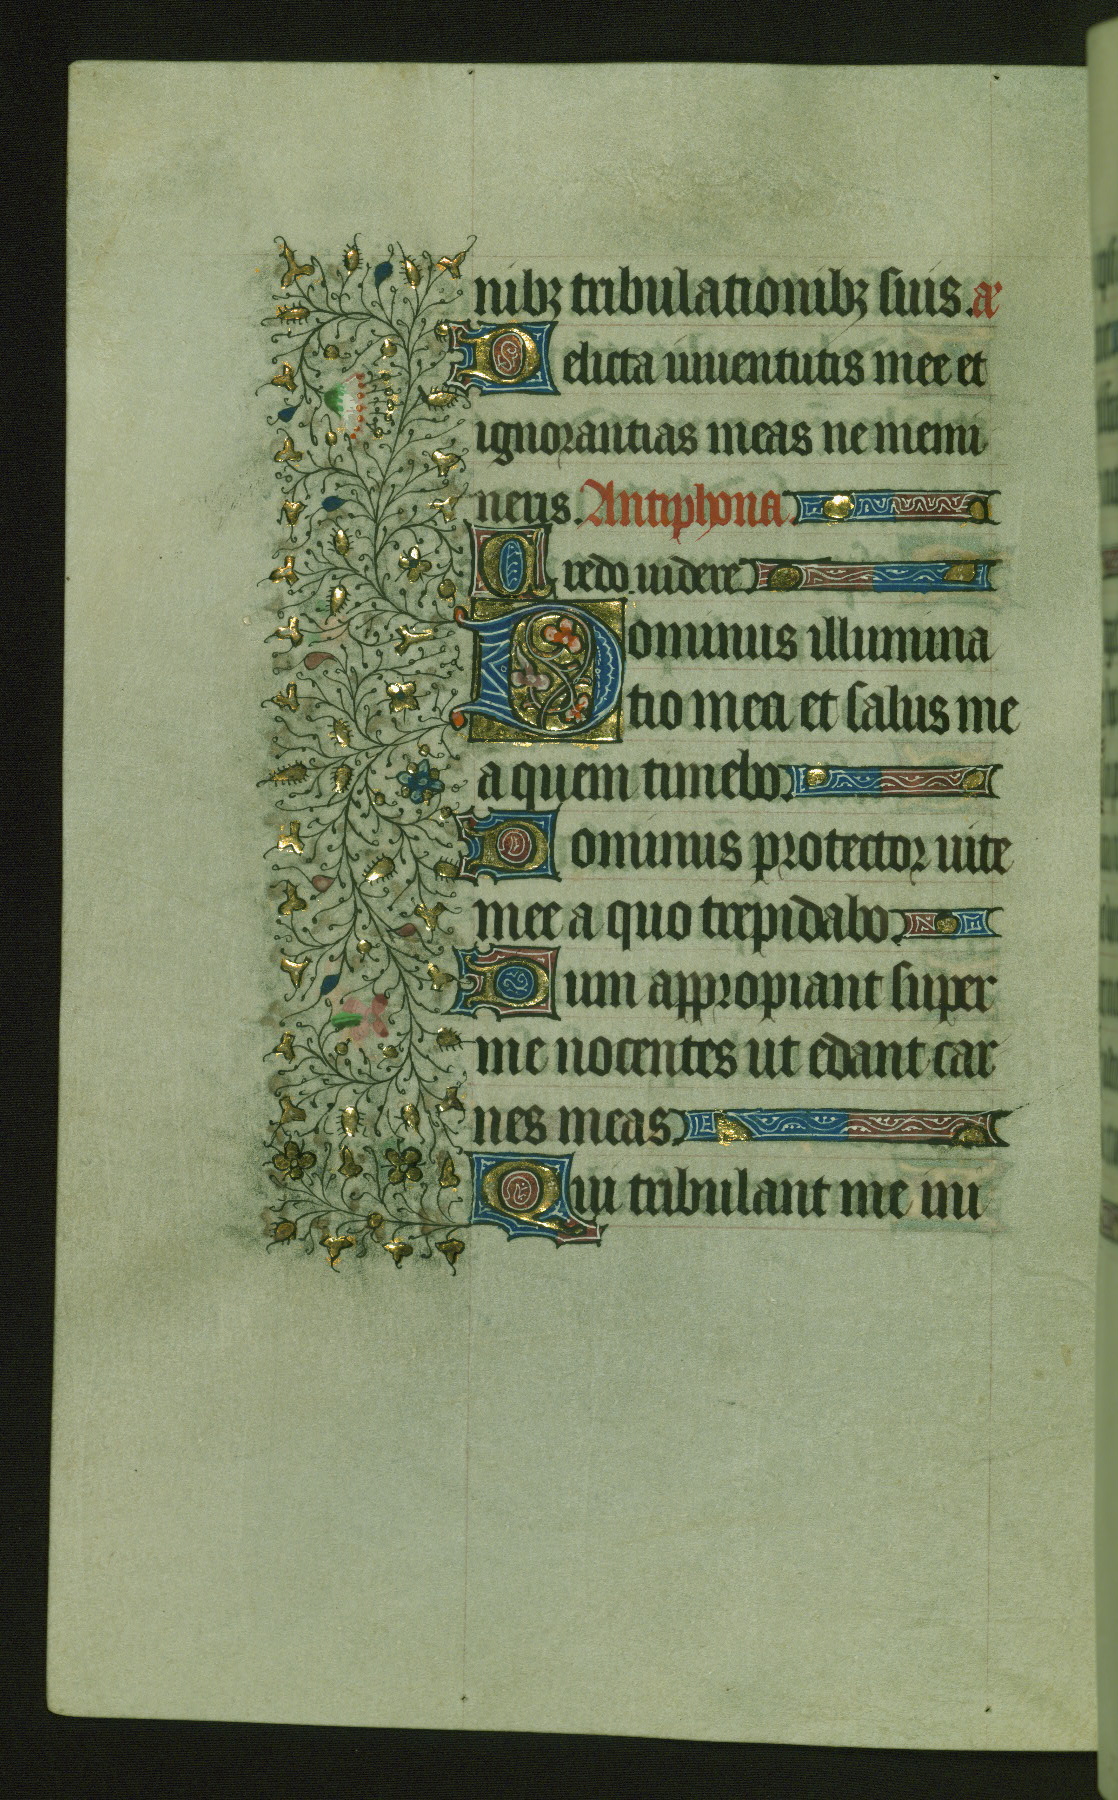 nibꝫ tribulationibꝫ suis. añ
Delicta iuuentutis mee et
ignorantias meas ne memi
neris. Antiphona
Credo uidere
Dominus illumina
tio mea et salus me
a quem timebo
Dominus protector uite
mee a quo trepidabo
Dum appropiant super
me nocentes ut edant car
nes meas
Qui tribulant me ini